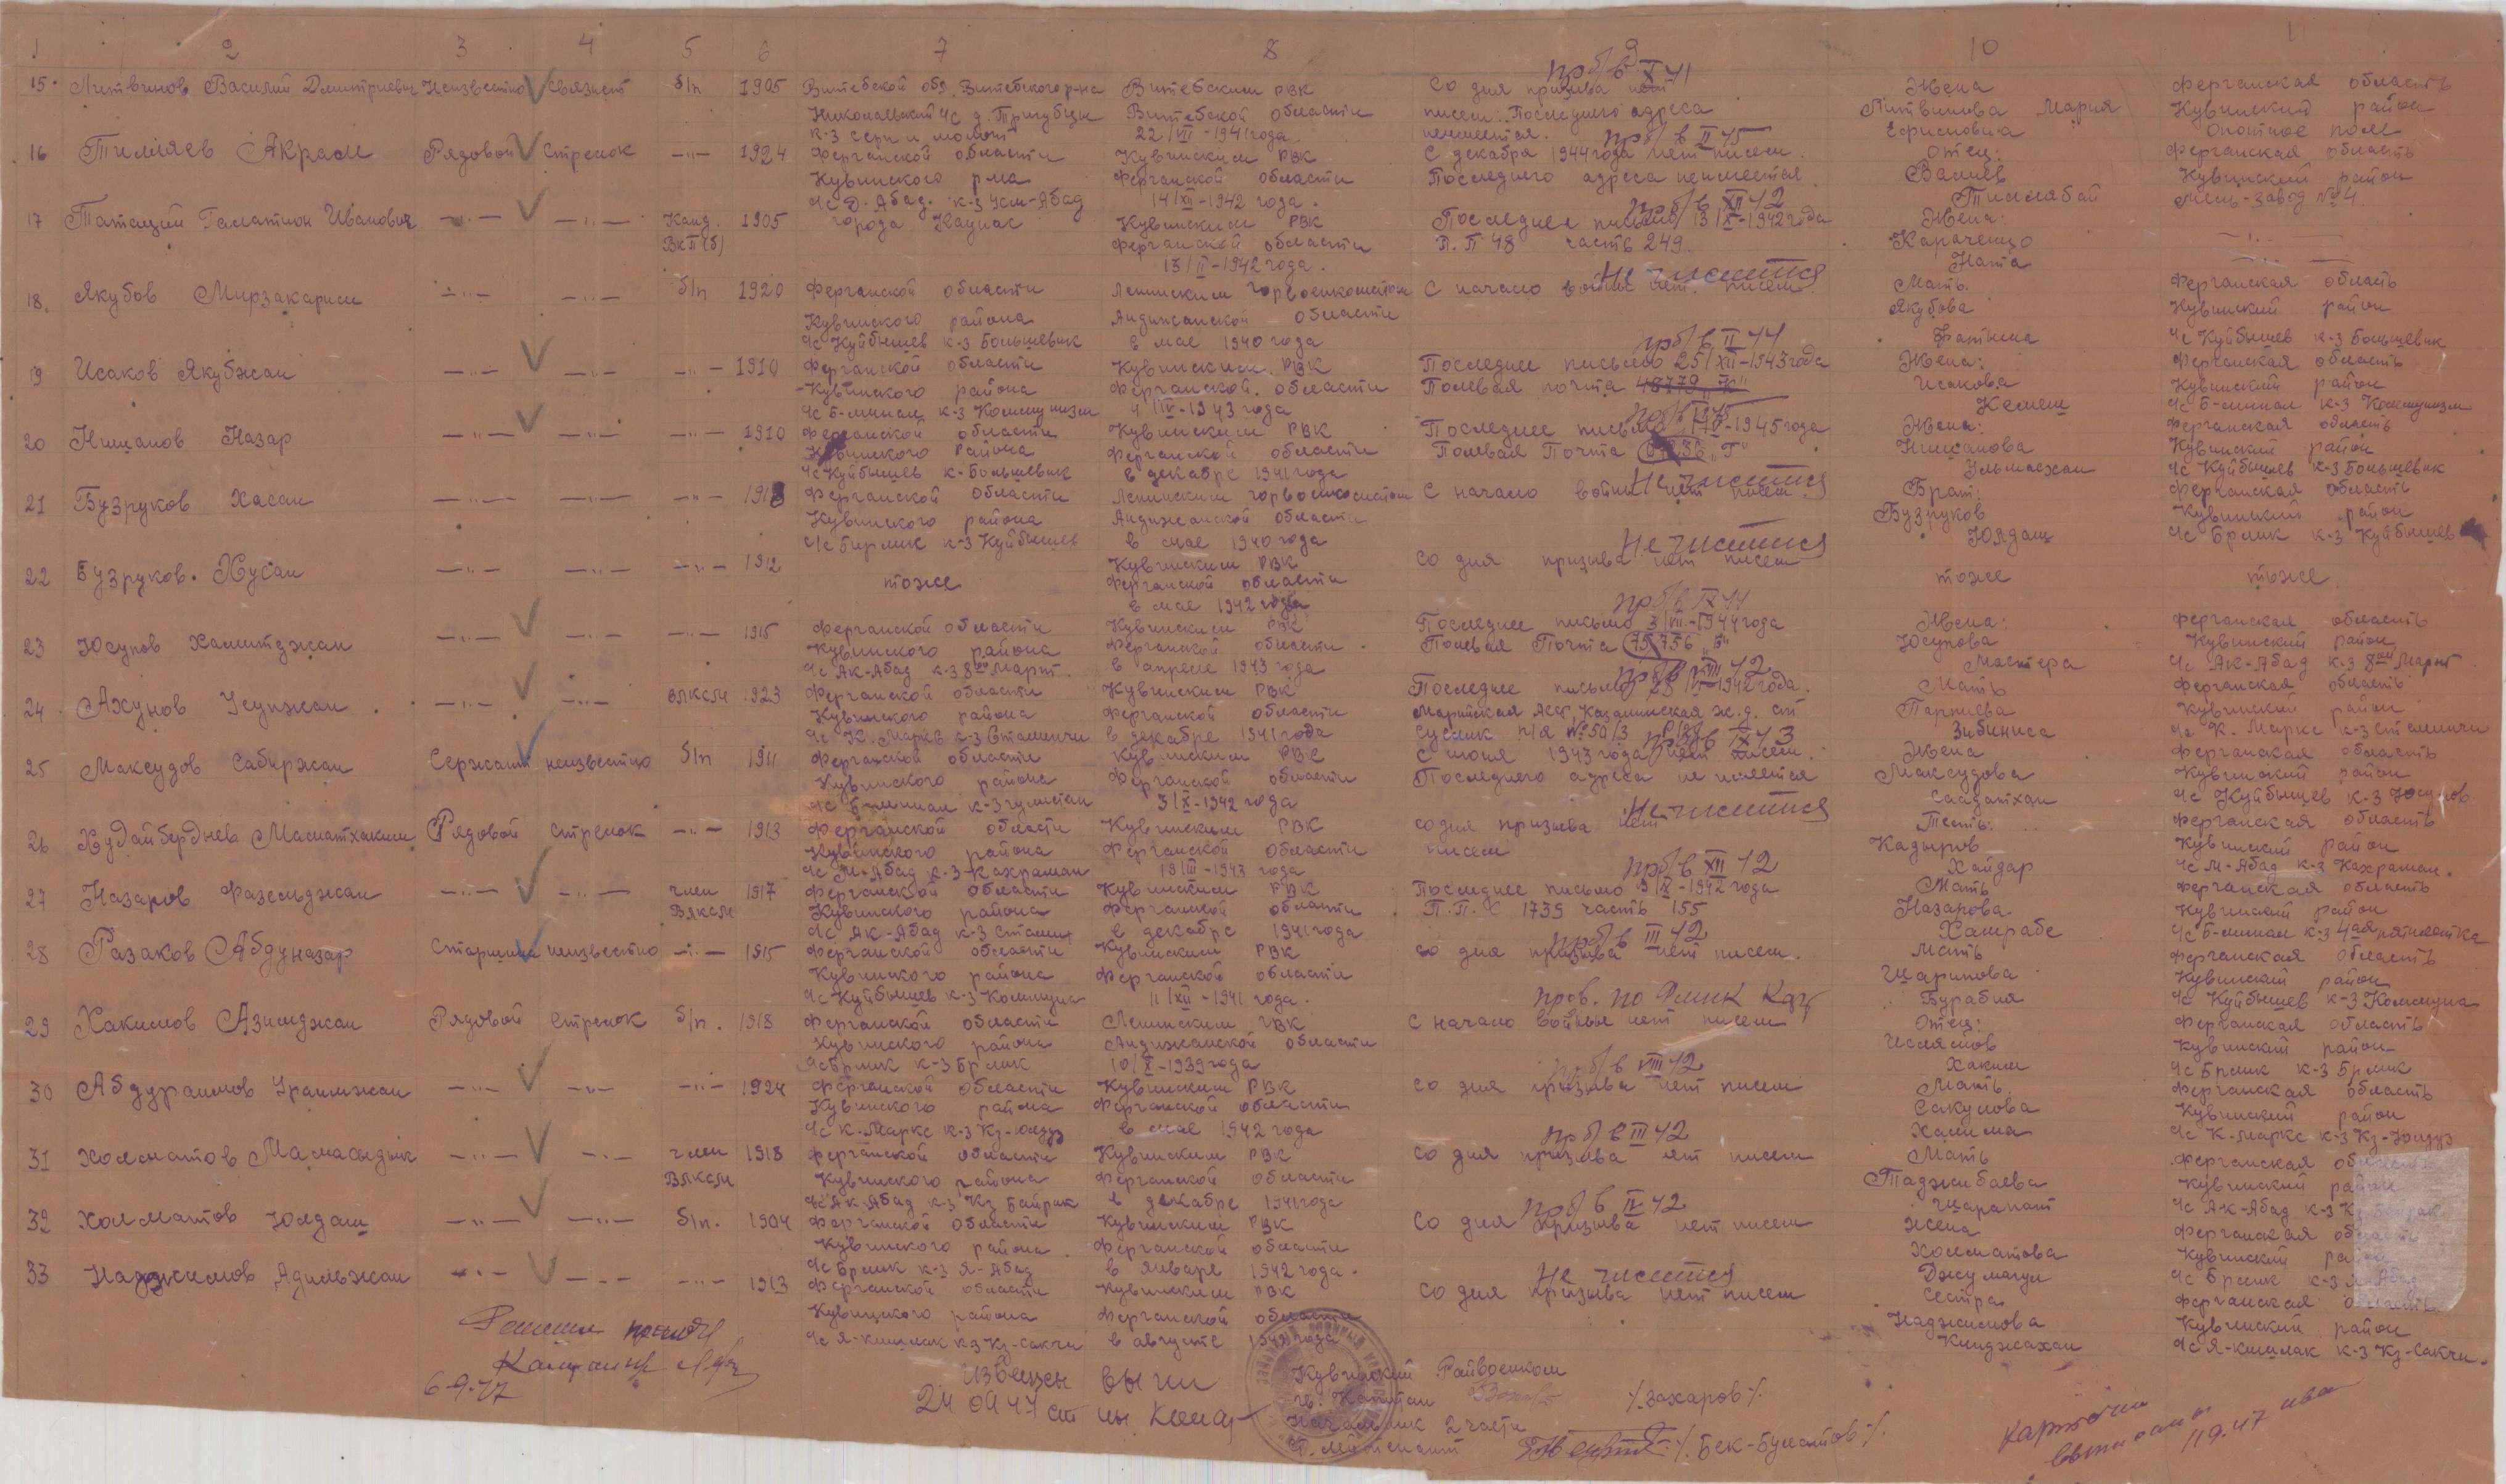 1 2 3 4 5 6 7 8 9 10
15. Литвинов Василий Дмитриевич Неизвестно связист б/п 1905 Витебской обл. Витебского р-на Витебским РВК Со дня призыва нет Жена Ферганская область
пр б/в X 41
Николаевский ч/с д. Витебской области писем. Последнего адреса Литвинова Мария Кувинский район
к-з серп и молот 22/VII-1941 года. неимеется. Ефисновна Опотное поле
пр б/в II 45
16 Тиляев Акрам Рядовой стрелок —"— 1924 Ферганской области Кувинским РВК С декабря 1944 года нет писем. Отец: Ферганская область
Кувинского р-на Ферганской области Последнего адреса неимеется Валиев Кувинский район
ч/с Д. Абад. к-з Усм-Абад 14/XII-1942 года. Тиллябай завод № 4.
пр б/в XII 42
17 Иванович —"— —"— Канд. 1905 города Кувинским РВК Последнее письмо 13/X-1942 года Жена: —"—
ВКП(б) Ферганской области П.П 48 часть 249. Караченцо
13/II-1942 года. Ната
Не числится
18. Якубов Мирзакарим —"— —"— б/п 1920 Ферганской области Ленинским горвоенкоматом С начало войны нет писем. Мать. Ферганская область
Кувинского района Андижанской области Якубова Кувинский район
ч/с Куйбышев к-з Большевик в мае 1940 года Фатима ч/с Куйбышев к-з Большевик
пр б/в II 44
19 Исаков Якубжан —"— —"— —"— 1910 Ферганской области Кувинским РВК Последнее письмо 25/XII-1943 года Жена: Ферганская область
Кувинского района Ферганской области Полевая почта 48779 "К" Исакова Кувинский район
ч/с Б-минал к-з Коммунизм 4/IV-1943 года ч/с Б-минал к-з Коммунизм
20 Нишанов Назар —"— —"— —"— 1910 Ферганской области Кувинским РВК Последнее письмо 1945 года Жена: Ферганская область
Кувинского Района Ферганской области Полевая Почта "Г" Нишанова Кувинский район
ч/с Куйбышев к-з Большевик в декабре 1941 года Ульмасхан ч/с Куйбышев к-з Большевик
Не числится
21 Бузруков Хасан —"— —"— —"— 1918 Ферганской области Ленинским горвоенкоматом С начало войны нет писем. Брат: Ферганская область
Кувинского района Андижанской области Бузруков Кувинский район
ч/с Бирлик к-з Куйбышев в мае 1940 года Юлдаш ч/с Брлик к-з Куйбышев
Не числится
22 Бузруков. Хусан —"— —"— —"— 1912 тоже Кувинским РВК Со дня призыва нет писем тоже тоже
Ферганской области
в мае 1942 года
пр б/в IX 44
23 Юсупов Хамитджан —"— —"— —"— 1915 Ферганской области Кувинским РВК Последнее письмо 3/VII-1944 года Жена: Ферганская область
Кувинского района Ферганской области. Полевая Почта 75756 "Б" Юсупова Кувинский район
ч/с Ак-Абад к-з 8ое Март. в апреле 1943 года Мастера ч/с Ак-Абад к-з 8ое Март
24 Ахунов Усупжан —"— —"— ВЛКСМ 1923 Ферганской области Кувинским РВК Последнее письмо 1942 года. Мать Ферганская область
Кувинского района Ферганской области Марийская АССР, ж.д. ст Парпиева Кувинский район
ч/с К. Маркс к-з Сталинчи в декабре 1941 года Суслик п/я № 50/3 Зибиниса ч/с К. Маркс к-з Сталинчи
пр б/в IX 43
25 Максудов Сабиржан Сержант неизвестно б/п 1911 Ферганской области Кувинским РВК С июня 1943 года нет писем. Жена Ферганская область
Кувинского района Ферганской области Последнего адреса не имеется Максудова Кувинский район
ч/с Б-минал к-з Гулистан 3/X-1942 года Саадатхан ч/с Куйбышев к-з Юсупов
Не числится
26 Худайбердиев Маматхаким Рядовой стрелок —"— 1913 Ферганской области Кувинским РВК Со дня призыва нет Тесть: Ферганская область
Кувинского района Ферганской области писем Кадыров Кувинский район
ч/с М-Абад к-з Кахраман 19/III-1943 года Хайдар ч/с М-Абад к-з Кахраман.
пр б/в XII 42
27 Назаров Фазелджан —"— —"— член 1917 Ферганской области Кувинским РВК Последнее письмо 9/IX-1942 года Мать Ферганская область
ВЛКСМ Кувинского района Ферганской области П.П.С 1739 часть 155 Назарова Кувинский район
ч/с Ак-Абад к-з Сталин в декабре 1941 года Хамрабе ч/с Б-минал к-з 4ая пятилетка
пр б/в III 42
28 Разаков Абдуназар Старшина неизвестно —"— 1915 Ферганской области Кувинским РВК Со дня призыва нет писем. Мать Ферганская область
Кувинского района Ферганской области Шарипова Кувинский район
ч/с Куйбышев к-з Коммуна 11/XII-1941 года. Бурабия ч/с Куйбышев к-з Коммуна
29 Хакимов Азимджан Рядовой стрелок б/п. 1918 Ферганской области Ленинским РВК С начало войны нет писем Отец: Ферганская область
Кувинского района Андижанской области Ислямов Кувинский район
ч/с Брлик к-з Брлик 10/X-1939 года Хаким ч/с Брлик к-з Брлик
пр б/в VIII 42
30 Абдураимов Ураимжан —"— —"— —"— 1924 Ферганской области Кувинским РВК Со дня призыва нет писем Мать Ферганская область
Кувинского района Ферганской области Сакумова Кувинский район
ч/с К-Маркс к-з Кз-Юлдуз в мае 1942 года Халима ч/с К-Маркс к-з Кз-Юлдуз
пр б/в III 42
31 Холматов Мамасыдик —"— —"— член 1918 Ферганской области Кувинским РВК Со дня призыва нет писем Мать Ферганская область
ВЛКСМ Кувинского района Ферганской области Таджибаева Кувинский район
ч/с Ак-Абад к-з Кз Байрак в декабре 1941 года Шарапат ч/с Ак-Абад к-з Кз Байрак
пр б/в IV 42
32 Холматов Юлдаш —"— —"— б/п. 1904 Ферганской области Кувинским РВК Со дня призыва нет писем Жена Ферганская область
Кувинского района. Ферганской области Холматова Кувинский район
ч/с Брлик к-з Я-Абад в январе 1942 года. Джумагул ч/с Брлик к-з Я-Абад
Не числится
33 Наджимов Адильжан —"— —"— —"— 1913 Ферганской области Кувинским РВК Со дня призыва нет писем Сестра Ферганская область
Кувинского района Ферганской области Наджимова Кувинский район
ч/с Я-кишлак к-з Кз-Сакчи в августе 1942 года Кинджахан ч/с Я-кишлак к-з Кз-Сакчи.
6-9-47
Кувинский Райвоенком
гв. Капитан /.Захаров/.
Начальник 2 части
/.Бек-Булатов/.
карточки